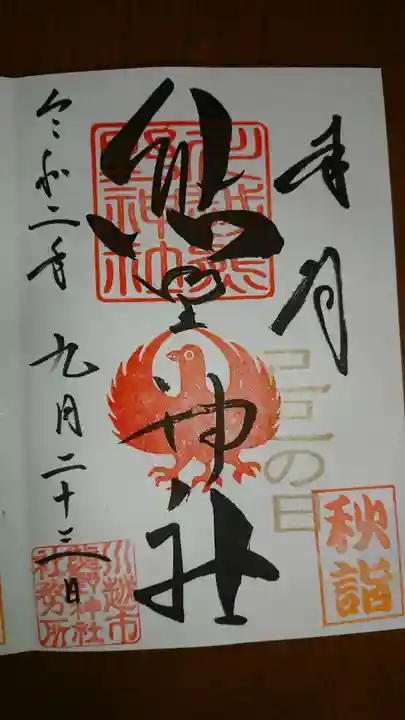 長月
己巳の日
秋詣
熊野神社
川越熊
野神社
令和二年 九月二十三日
川越市
熊野神社
社務所